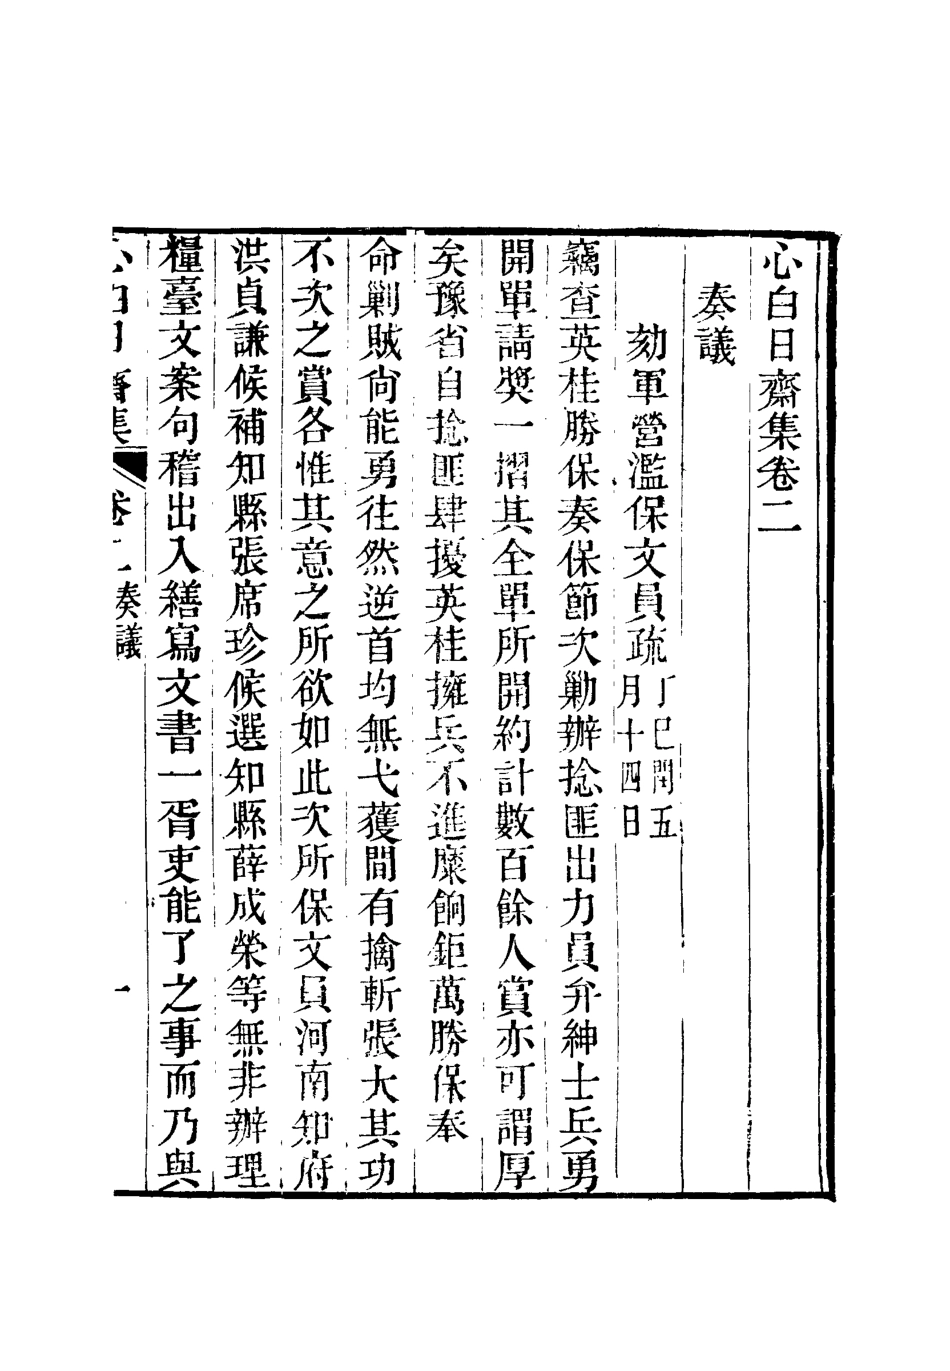 心白日齋集卷二
奏議
劾軍營濫保文員疏丁巳閏五月十四日
竊查英桂勝保奏保節次勦辦捻匪出力員弁紳士兵勇
開單請獎一摺其全單所開約計數百餘人賞亦可謂厚
矣豫省自捻匪肆擾英桂擁兵不進糜餉鉅萬勝保奉
命剿賊尙能勇往然逆首均無弋獲間有擒斬張大其功
不次之賞各惟其意之所欲如此次所保文員河南知府
洪貞謙候補知縣張席珍候選知縣薛成榮等無非辦理
糧臺文案句稽出入繕寫文書一胥吏能了之事而乃與
心白日齋集 卷二 奏議 一